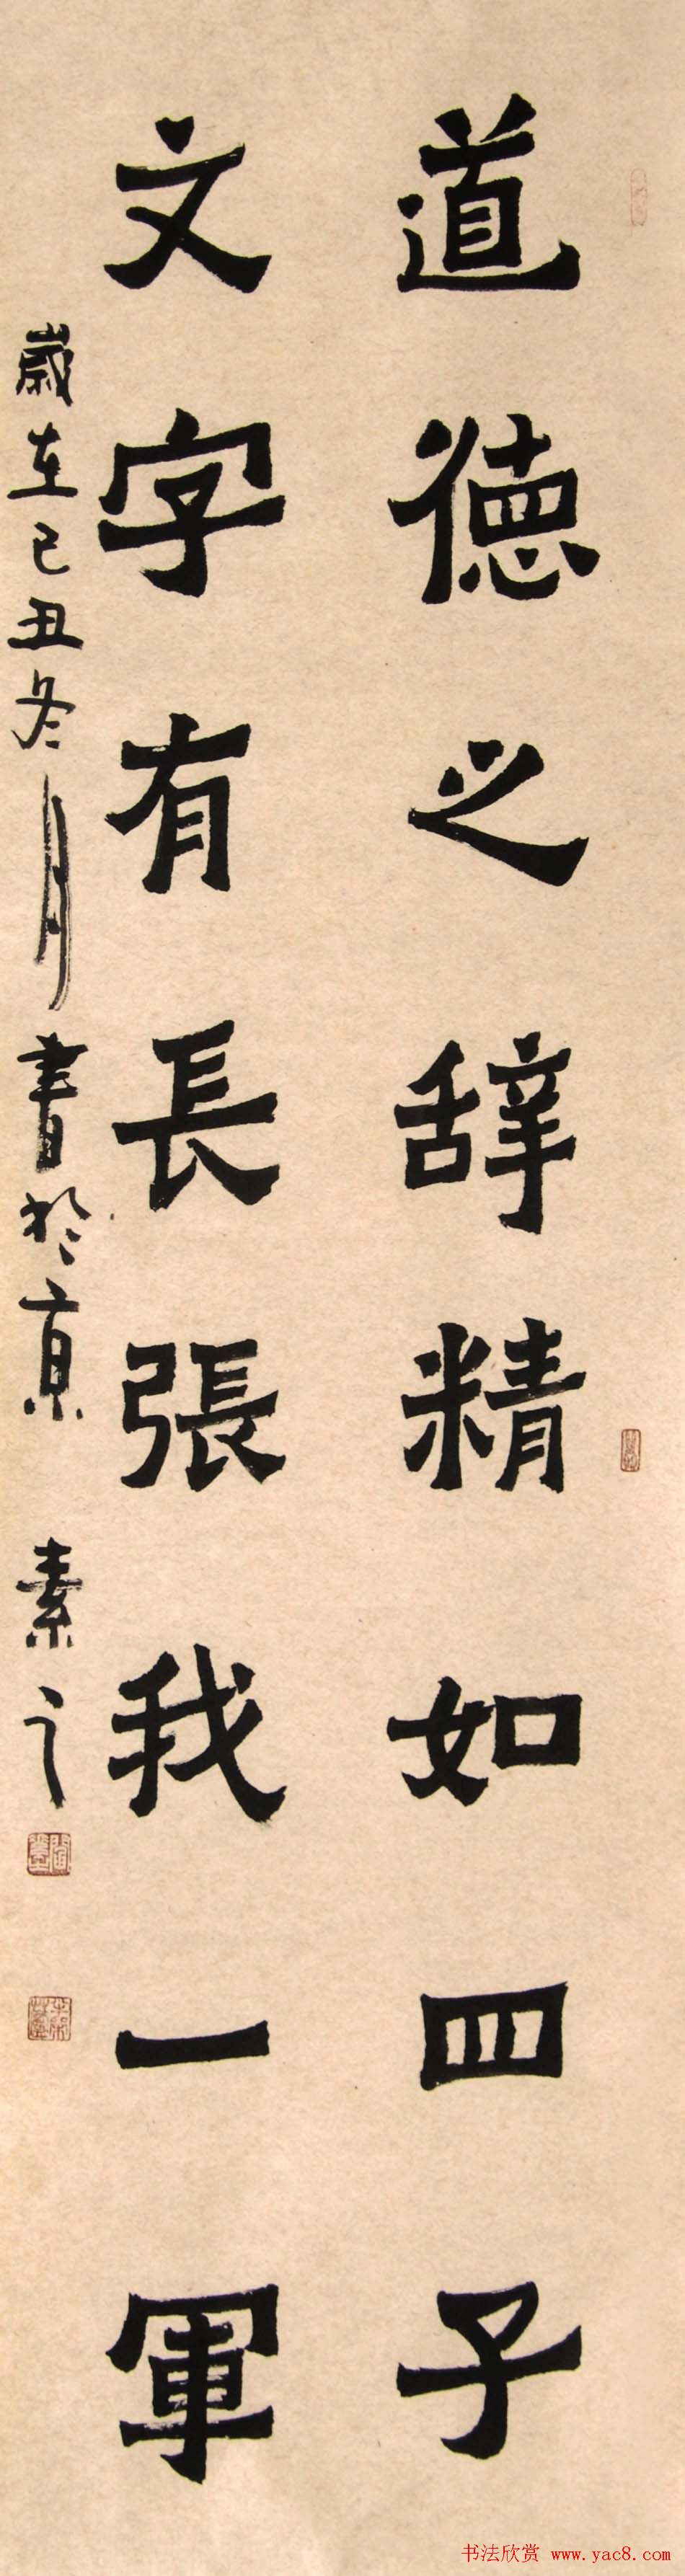 道德之辞精如四子
文字有長張我一軍
歲在己丑冬月書於京 素之
书法欣赏 www.yac8.com